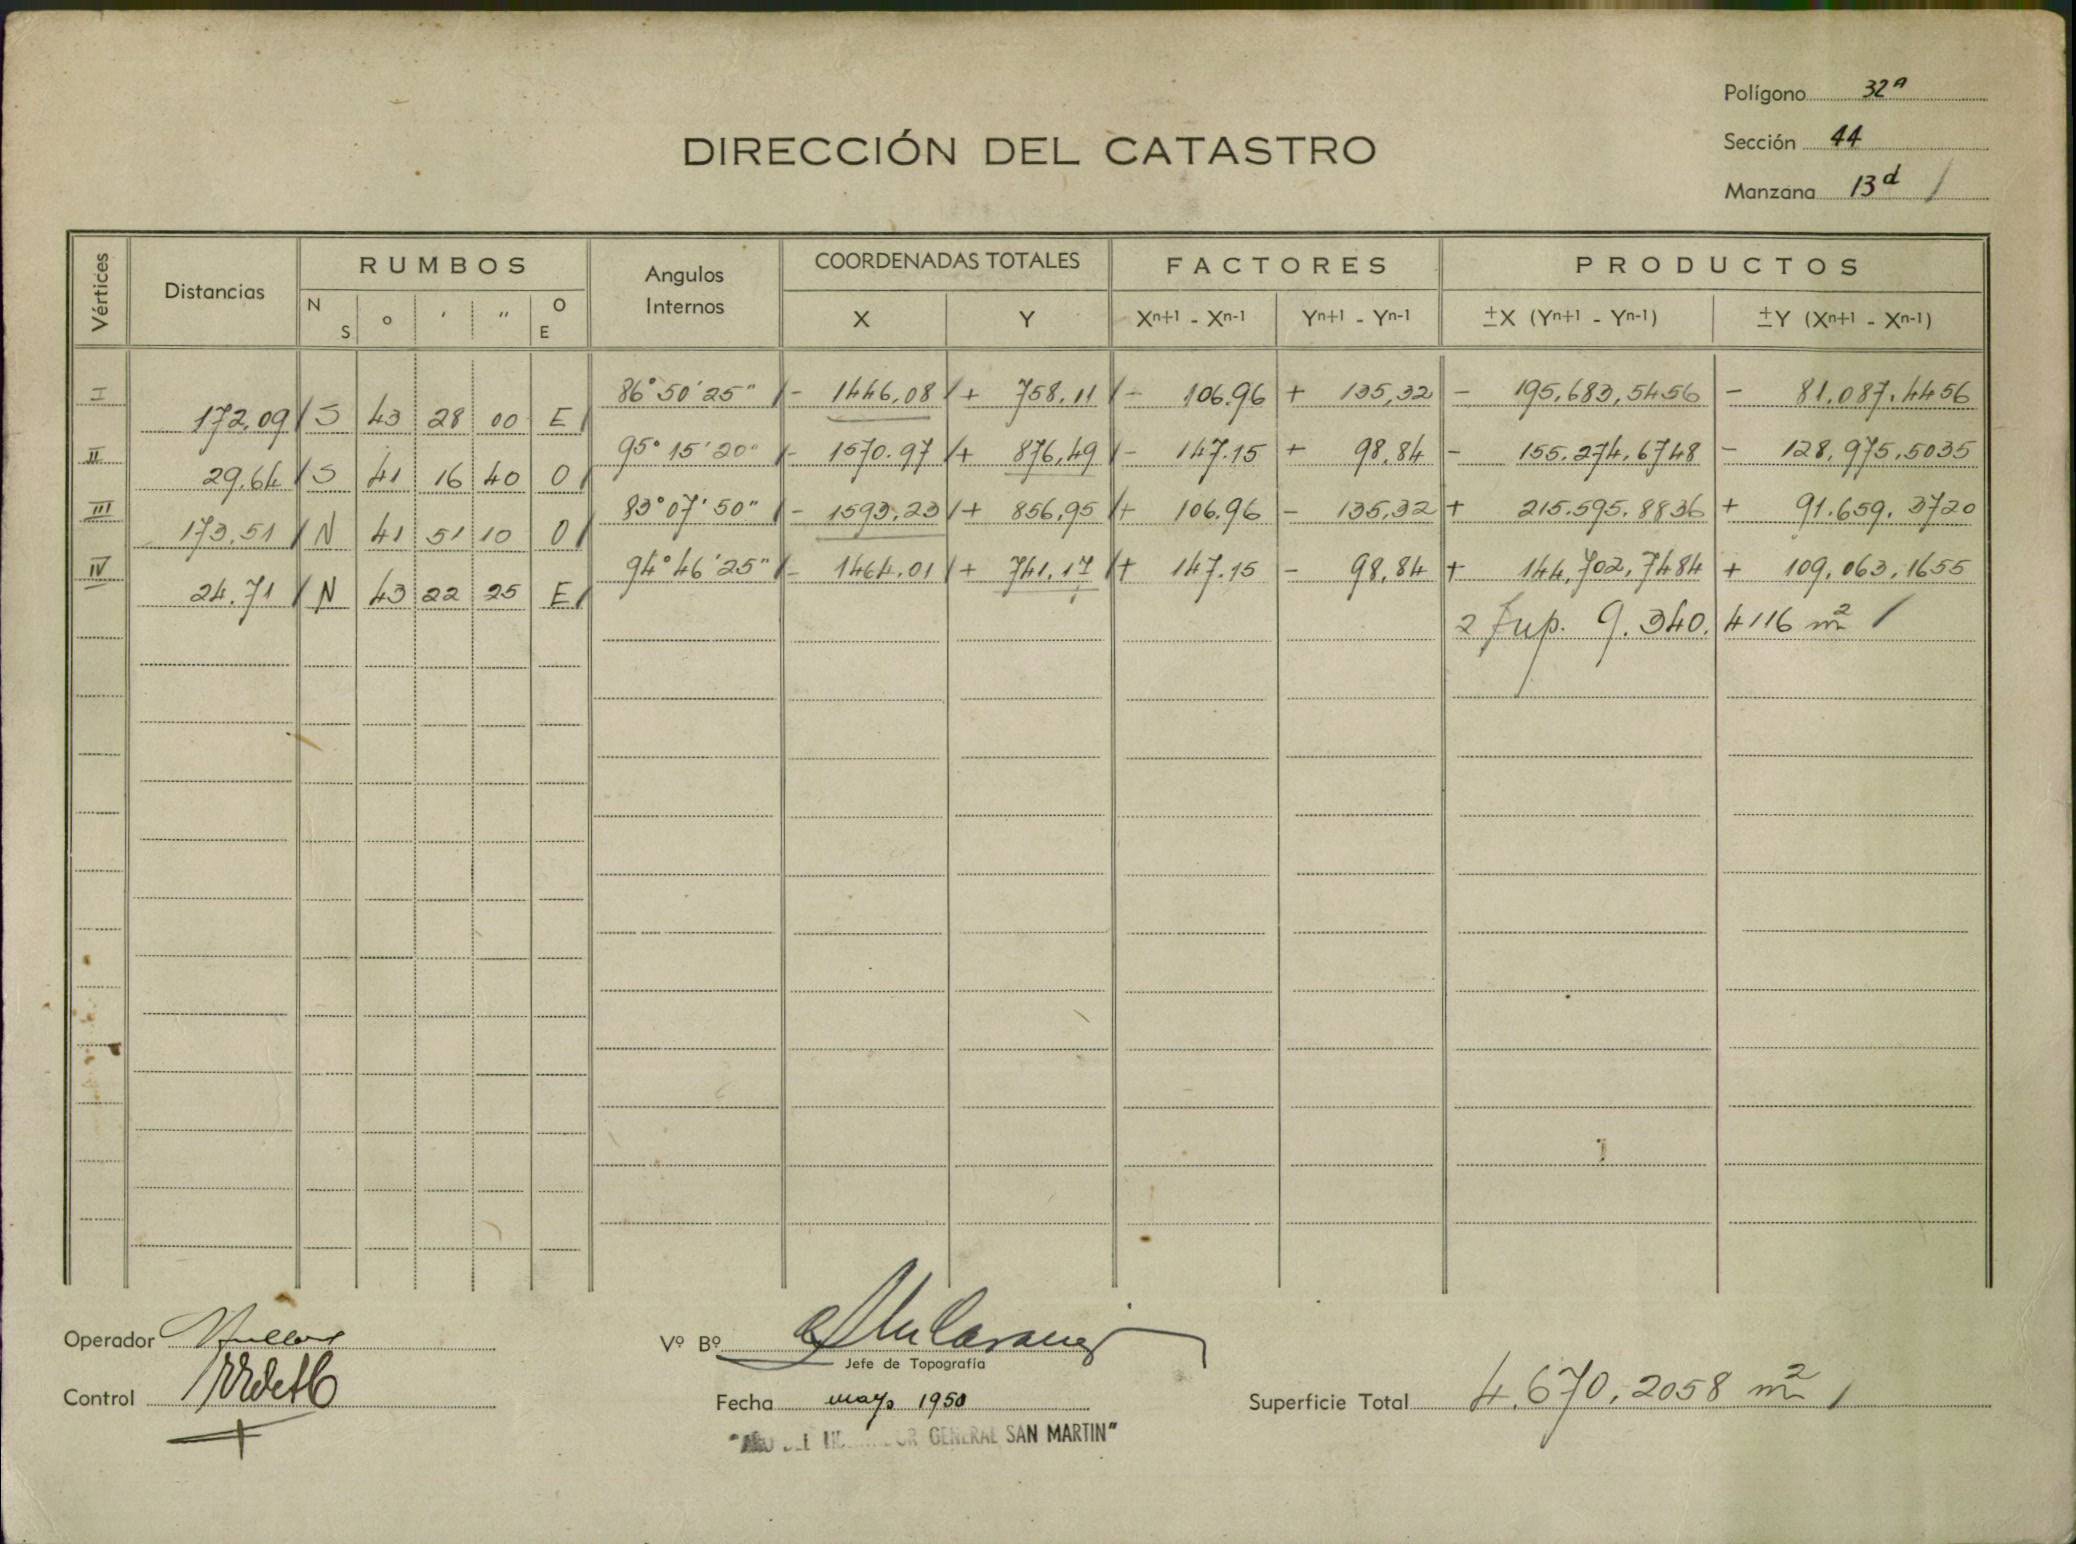 Polígono 32ª
Sección 44
Manzana 13d /
DIRECCIÓN DEL CATASTRO
Vértices Distancias RUMBOS Angulos Internos COORDENADAS TOTALES FACTORES PRODUCTOS
N S ° ' '' O E X Y Xn+1 - Xn-1 Yn+1 - Yn-1 ±X (Yn+1 - Yn-1) ±Y (Xn+1 - Xn-1)
I 86° 50' 25" / - 1446,08 / + 758,11 / - 106.96 + 135,32 - 195,683,5456 - 81.087.4456
172,09 / S 43 28 00 E /
II 95° 15' 20" / - 1570.97 / + 876,49 / - 147.15 + 98,84 - 155.274,6748 - 128,975,5035
29.64 / S 41 16 40 O /
III 83° 07' 50" / - 1593,23 / + 856,95 / + 106.96 - 135,32 + 215.595.8836 + 91.659.3720
173.51 / N 41 51 10 O /
IV 94° 46' 25" / - 1464.01 / + 741,17 / + 147.15 - 98,84 + 144,702,7484 + 109,063,1655
24.71 / N 43 22 25 E /
2 Sup. 9.340.4116 m² /
Operador
Control
Vº Bº
Jefe de Topografía
Fecha mayo 1950
GENERAL SAN MARTIN"
Superficie Total 4.670,2058 m² /